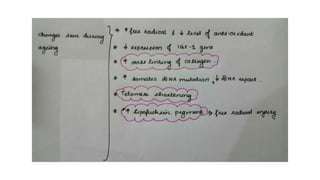 changes seen during
ageing
* ↑ free radical & ↓ level of anti-oxidant
* ↓ expression of IGF-1 gene
* ↑ cross linking of collagen.
* ↑ somatic DNA mutation, ↓ DNA repair.
* Telomere shortening.
* ↑ lipofuschin pigment → free radical injury